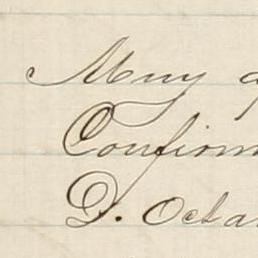 Muy a
Confirm
D. Octa